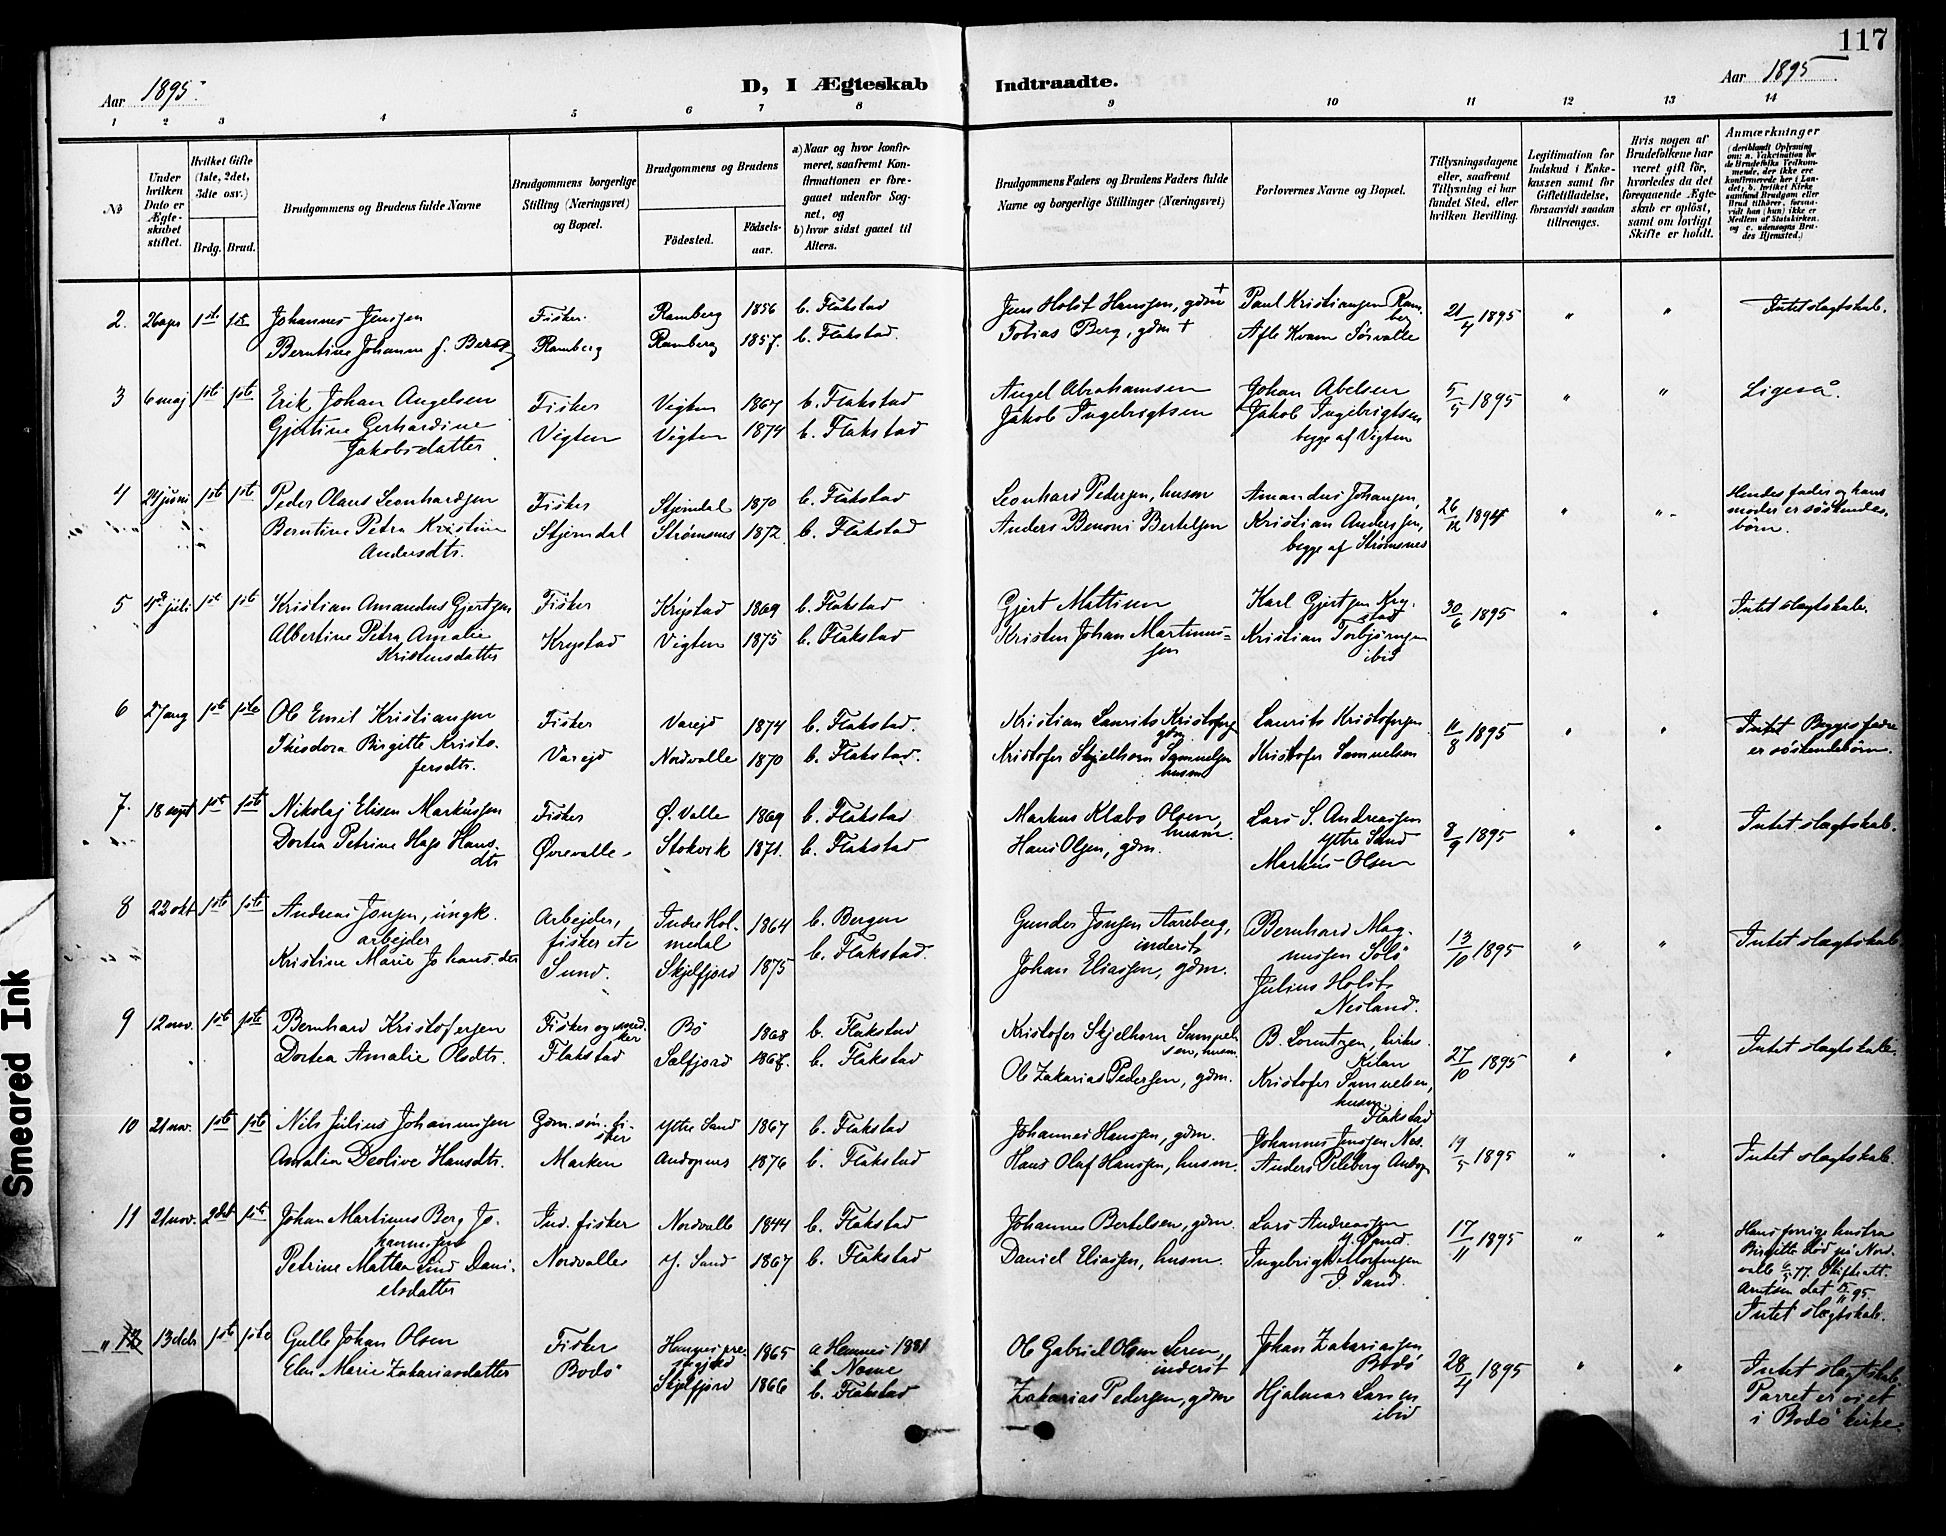 117
Aar 1895.
D, I Ægteskab Indtraadte.
Aar 1895
1 2 3 4 5 6 7 8 9 10 11 12 13 14
№
Under hvilken Dato er Ægteskabet stiftet.
Hvilket Gifte (1ste, 2det, 3die osv.)
Brdg. Brud.
Brudgommens og Brudens fulde Navne
Brudgommens borgerlige Stilling (Næringsvei) og Bopæl.
Brudgommens og Brudens
Födested.
Födsels-aar.
a) Naar og hvor konfirmeret, saafremt Konfirmationen er foregaaet udenfor Sognet, og
b) hvor sidst gaaet til Alters.
Brudgommens Faders og Brudens Faders fulde Navne og borgerlige Stillinger (Næringsvei)
Forlovernes Navne og Bopæl.
Tillysningsdagene eller, saafremt Tillysning ei har fundet Sted, efter hvilken Bevilling.
Legitimation for Indskud i Enkekassen samt for Giftetilladelse, forsaavidt saadan tiltrænges.
Hvis nogen af Brudefolkene har været gift för, hvorledes da det foregaaende Ægteskab er oplöst, samt om lovligt Skifte er holdt.
Anmærkninger
(deriblandt Oplysning om: a. Vakcination for de Brudefolks Vedkommende, der ikke ere konfirmerede her i Landet; b. hvilket Kirkesamfund Brudgom eller Brud tilhörer, forsaavidt han (hun) ikke er Medlem af Statskirken, og c. udensogns Brudes Hjemsted.)
2. 26 apr 1ste 1ste Johannes Jenssen Fisker. Ramberg 1856 b. Flakstad Jens Holst Hanssen, gdm + Paul Kristiansen Ramberg 21/4 1895 " " Intet slægtskab.
Berntine Johanne f. Berg Ramberg Ramberg 1857. b. Flakstad. Tobias Berg, gdm + Kvam Sørvalle
3 6 maj 1ste 1ste Erik Johan Angelsen Fisker Vigten 1867 b. Flakstad Angel Abrahamsen Johan Abelsen 5/5 1895 " " Ligeså.
Gjertine Gerhardine Jakobsdatter Vigten Vigten 1874 b. Flakstad Jakob Ingebrigtsen Jakob Ingebrigtsen
begge af Vigten
4 24 juni 1ste 1ste Peder Olaus Leonhardsen Fisker Stjerndal 1870 b. Flakstad Leonhard Pedersen, husm Amandus Johansen, 26/12 1894 " " Hendes fader og hans moder er söskendebörn.
Berntine Petra Kristine Andersdtr. Stjerndal Strømsnes 1872. b. Flakstad Anders Benoni Bertelsen Kristian Anderssen,
begge af Strømsnes
5 4de juli 1ste 1ste Kristian Amandus Gjertsen Fisker Krystad 1869 b. Flakstad Gjert Mattisen Karl Gjertsen Krystad 30/6 1895 " " Intet slægtskab.
Albertine Petra Amalie Kristensdatter Krystad Vigten 1875 b. Flakstad Kristen Johan Martinussen Kristian Torbjörnsen ibid
6 27 aug 1ste 1ste Ole Emil Kristiansen Fisker Varejd 1874 b. Flakstad. Kristian Laurits Kristofersen gdm Laurits Kristofersen 11/8 1895 " " Intet Begges fædre er söskendebörn.
Theodora Birgitte Kristofersdtr. Varejd Nordvalle 1870 b. Flakstad. Kristofer Skjelhorn Samuelsen husm Kristofer Samuelsen
7. 18 sept 1ste 1ste Nikolaj Elisen Markussen Fisker Ø. Valle 1869 b. Flakstad Markus Klæbo Olsen, husm. Lars S. Andreassen Ytre Sand 8/9 1895 " " Intet slægtskab.
Dortea Petrine Hansdtr Øvrevalle Stokvik 1871. b. Flakstad Hans Olsen, gdm. Markus Olsen
8 22 okt 1ste 1ste Andreas Jonsen, ungk. arbejder Arbejder, fisker etc Indre Holmedal 1864 b. Bergen Gunder Jonsen Aareberg, inderst Bernhard Magnussen Solö 13/10 1895 " " Intet slægtskab
Kristine Marie Johansdtr Sund. Skjelfjord 1875 b. Flakstad. Johan Eliassen, gdm. Julius Holst Nesland.
9 12 nov. 1ste 1ste Bernhard Kristofersen Fisker og snedker Bö 1868 b. Flakstad Kristofer Skjelhorn Samuelsen, husm. B. Lorentzen, Kilan 27/10 1895 " " Intet slægtskab.
Dortea Amalie Olsdtr. Flakstad Selfjord 1868. b. Flakstad Ole Zakarias Pedersen, gdm. Kristofer Samuelsen, husm Flakstad
10 21 nov. 1ste 1ste Nils Julius Johannessen Gdm. sön. fisker Ytre Sand 1867 b. Flakstad Johannes Hanssen, gdm. Johannes Jenssen Nes. 19/5 1895 " " Intet slægtskab.
Amalia Deolive Hansdtr. Marken Andopnes 1876 b. Flakstad Hans Olaf Hanssen, husm. Anders Peleberg Andop
11 21 nov. 2det 1ste Johan Martinus Berg Johannessen Ind. fisker Nordvalle 1844 b. Flakstad Johannes Bertelsen, gdm. Lars Andreassen Y. Sand. 17/11 1895 " " Hans forrige hustru Birgitte död på Nordvalle 6/5 77. Skifteatt. Arntsen dat 15/11 95. Intet slægtskab.
Petrine Mattea Lind Danielsdatter Nordvalle Y. Sand 1867 b. Flakstad Daniel Eliassen, husm. Ingebrigt Mortensen I. Sand.
" 12 13 deb 1ste 1ste Gulle Johan Olsen Fisker Hemnes prestegjeld 1865 a Hemnes 1881 b Nesne Ole Gabriel Olsen Leren, inderst Johan Zakariassen Bodö 28/4 1895 " " Intet slægtskab. Parret er viet i Bodö kirke.
Elen Marie Zakariasdatter Bodö Skjelfjord 1866 b. Flakstad Zakarias Pedersen, gdm Hjalmar Larsen ibid
Smeared Ink